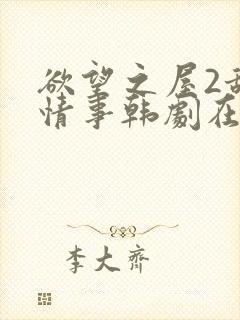 欲望之屋2
情事韩劇在
李大齊